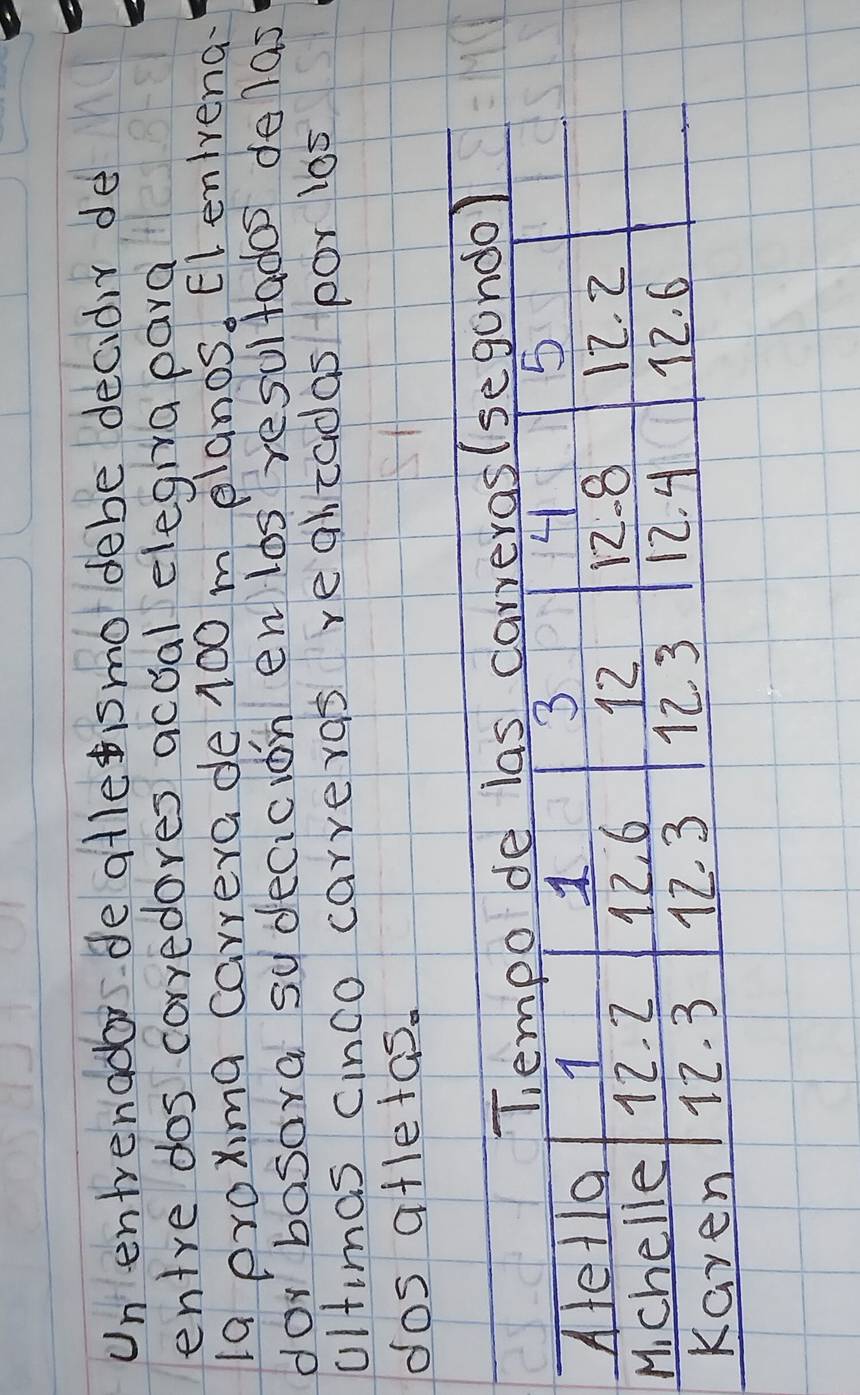 Un entrenador de atletismo debe decidir de
entre dos corredores acual elegira para
la proxima carrera de 100 m planos. El entrena-
dor basara su decición en los resultados de las
ultimas cinco carreras realizadas por las
dos atletas.
Tiempo de las carreras (segundo)
Atetla 1 1 3 4 5
Michelle 12.2 12.6 12 12.8 12.2
Karen 12.3 12.3 12.3 12.4 12.6